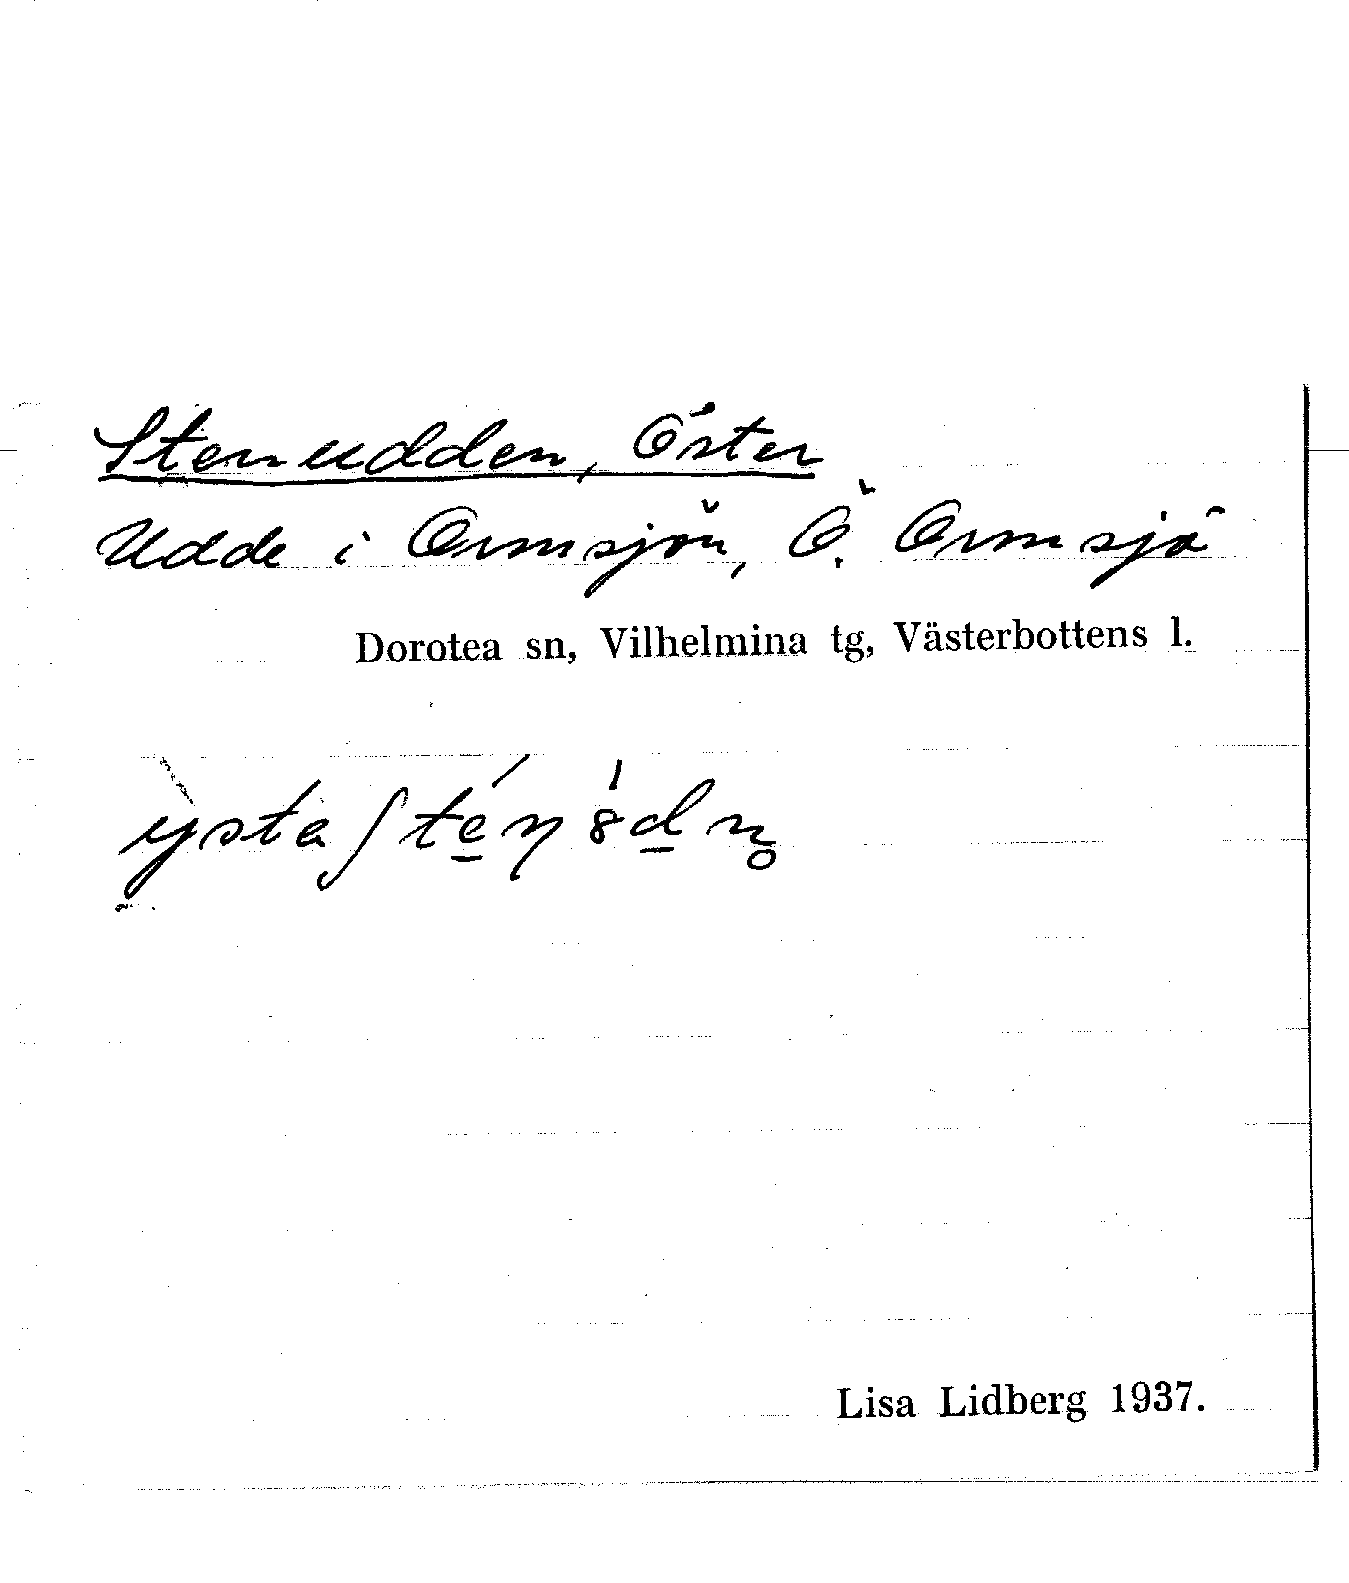 Stenudden, Öster
Udde i Ormsjön, Ö. Ormsjö
Dorotea sn, Vilhelmina tg, Västerbottens l.
Lisa Lidberg 1937.